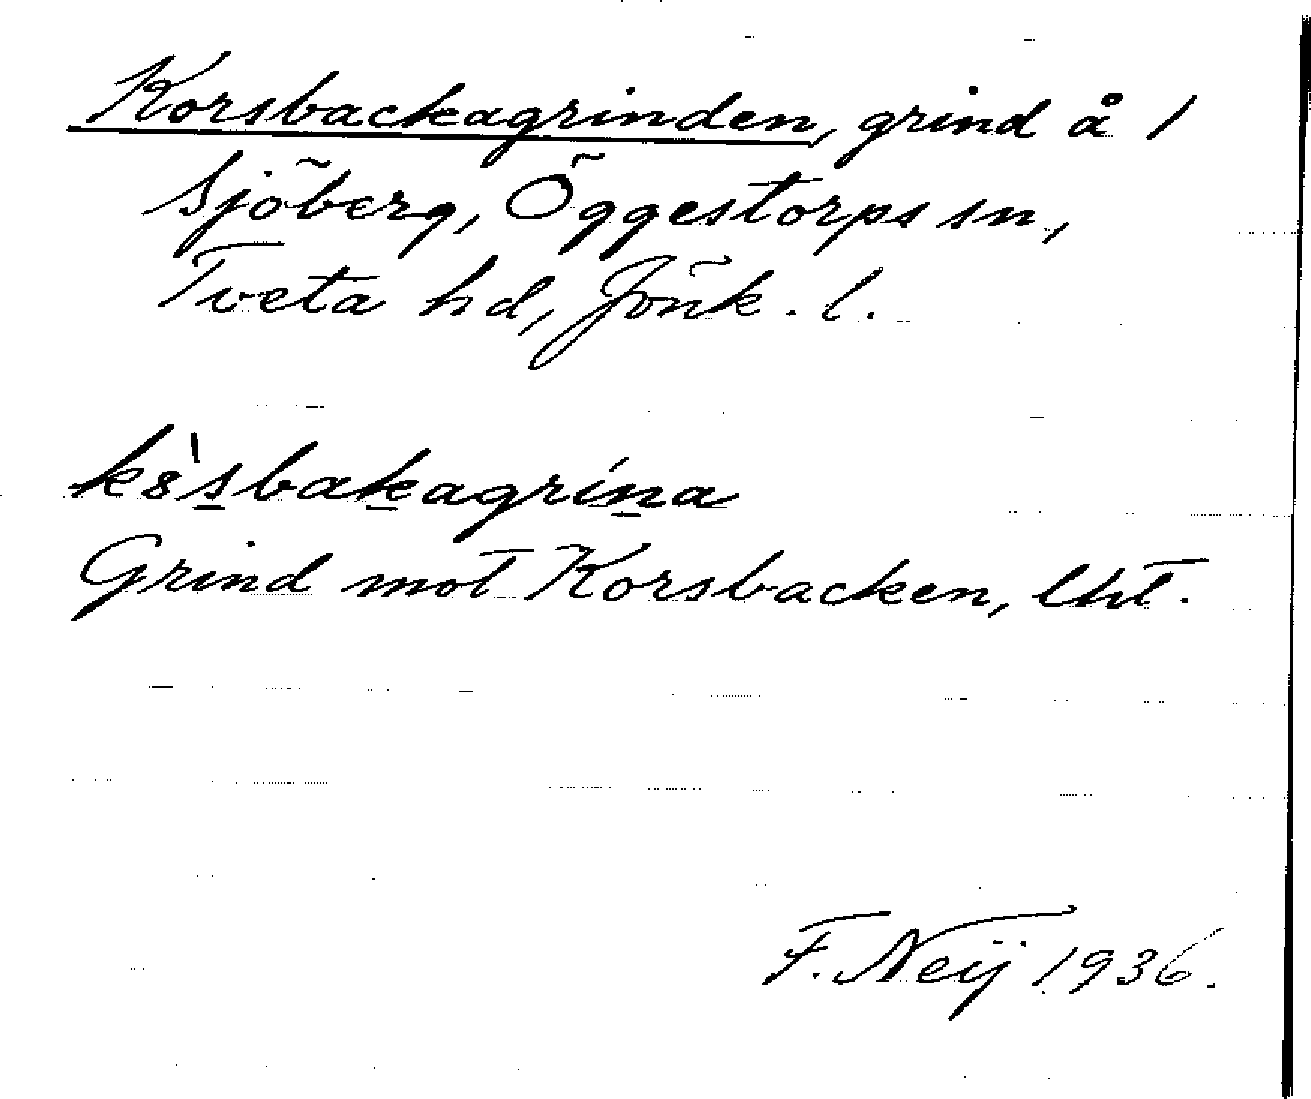 Korsbackagrinden, grind å 1
Sjöberg, Öggestorps sn,
Tveta hd, Jönk. l.
Grind mot Korsbacken, lht.
F. Neij 1936.